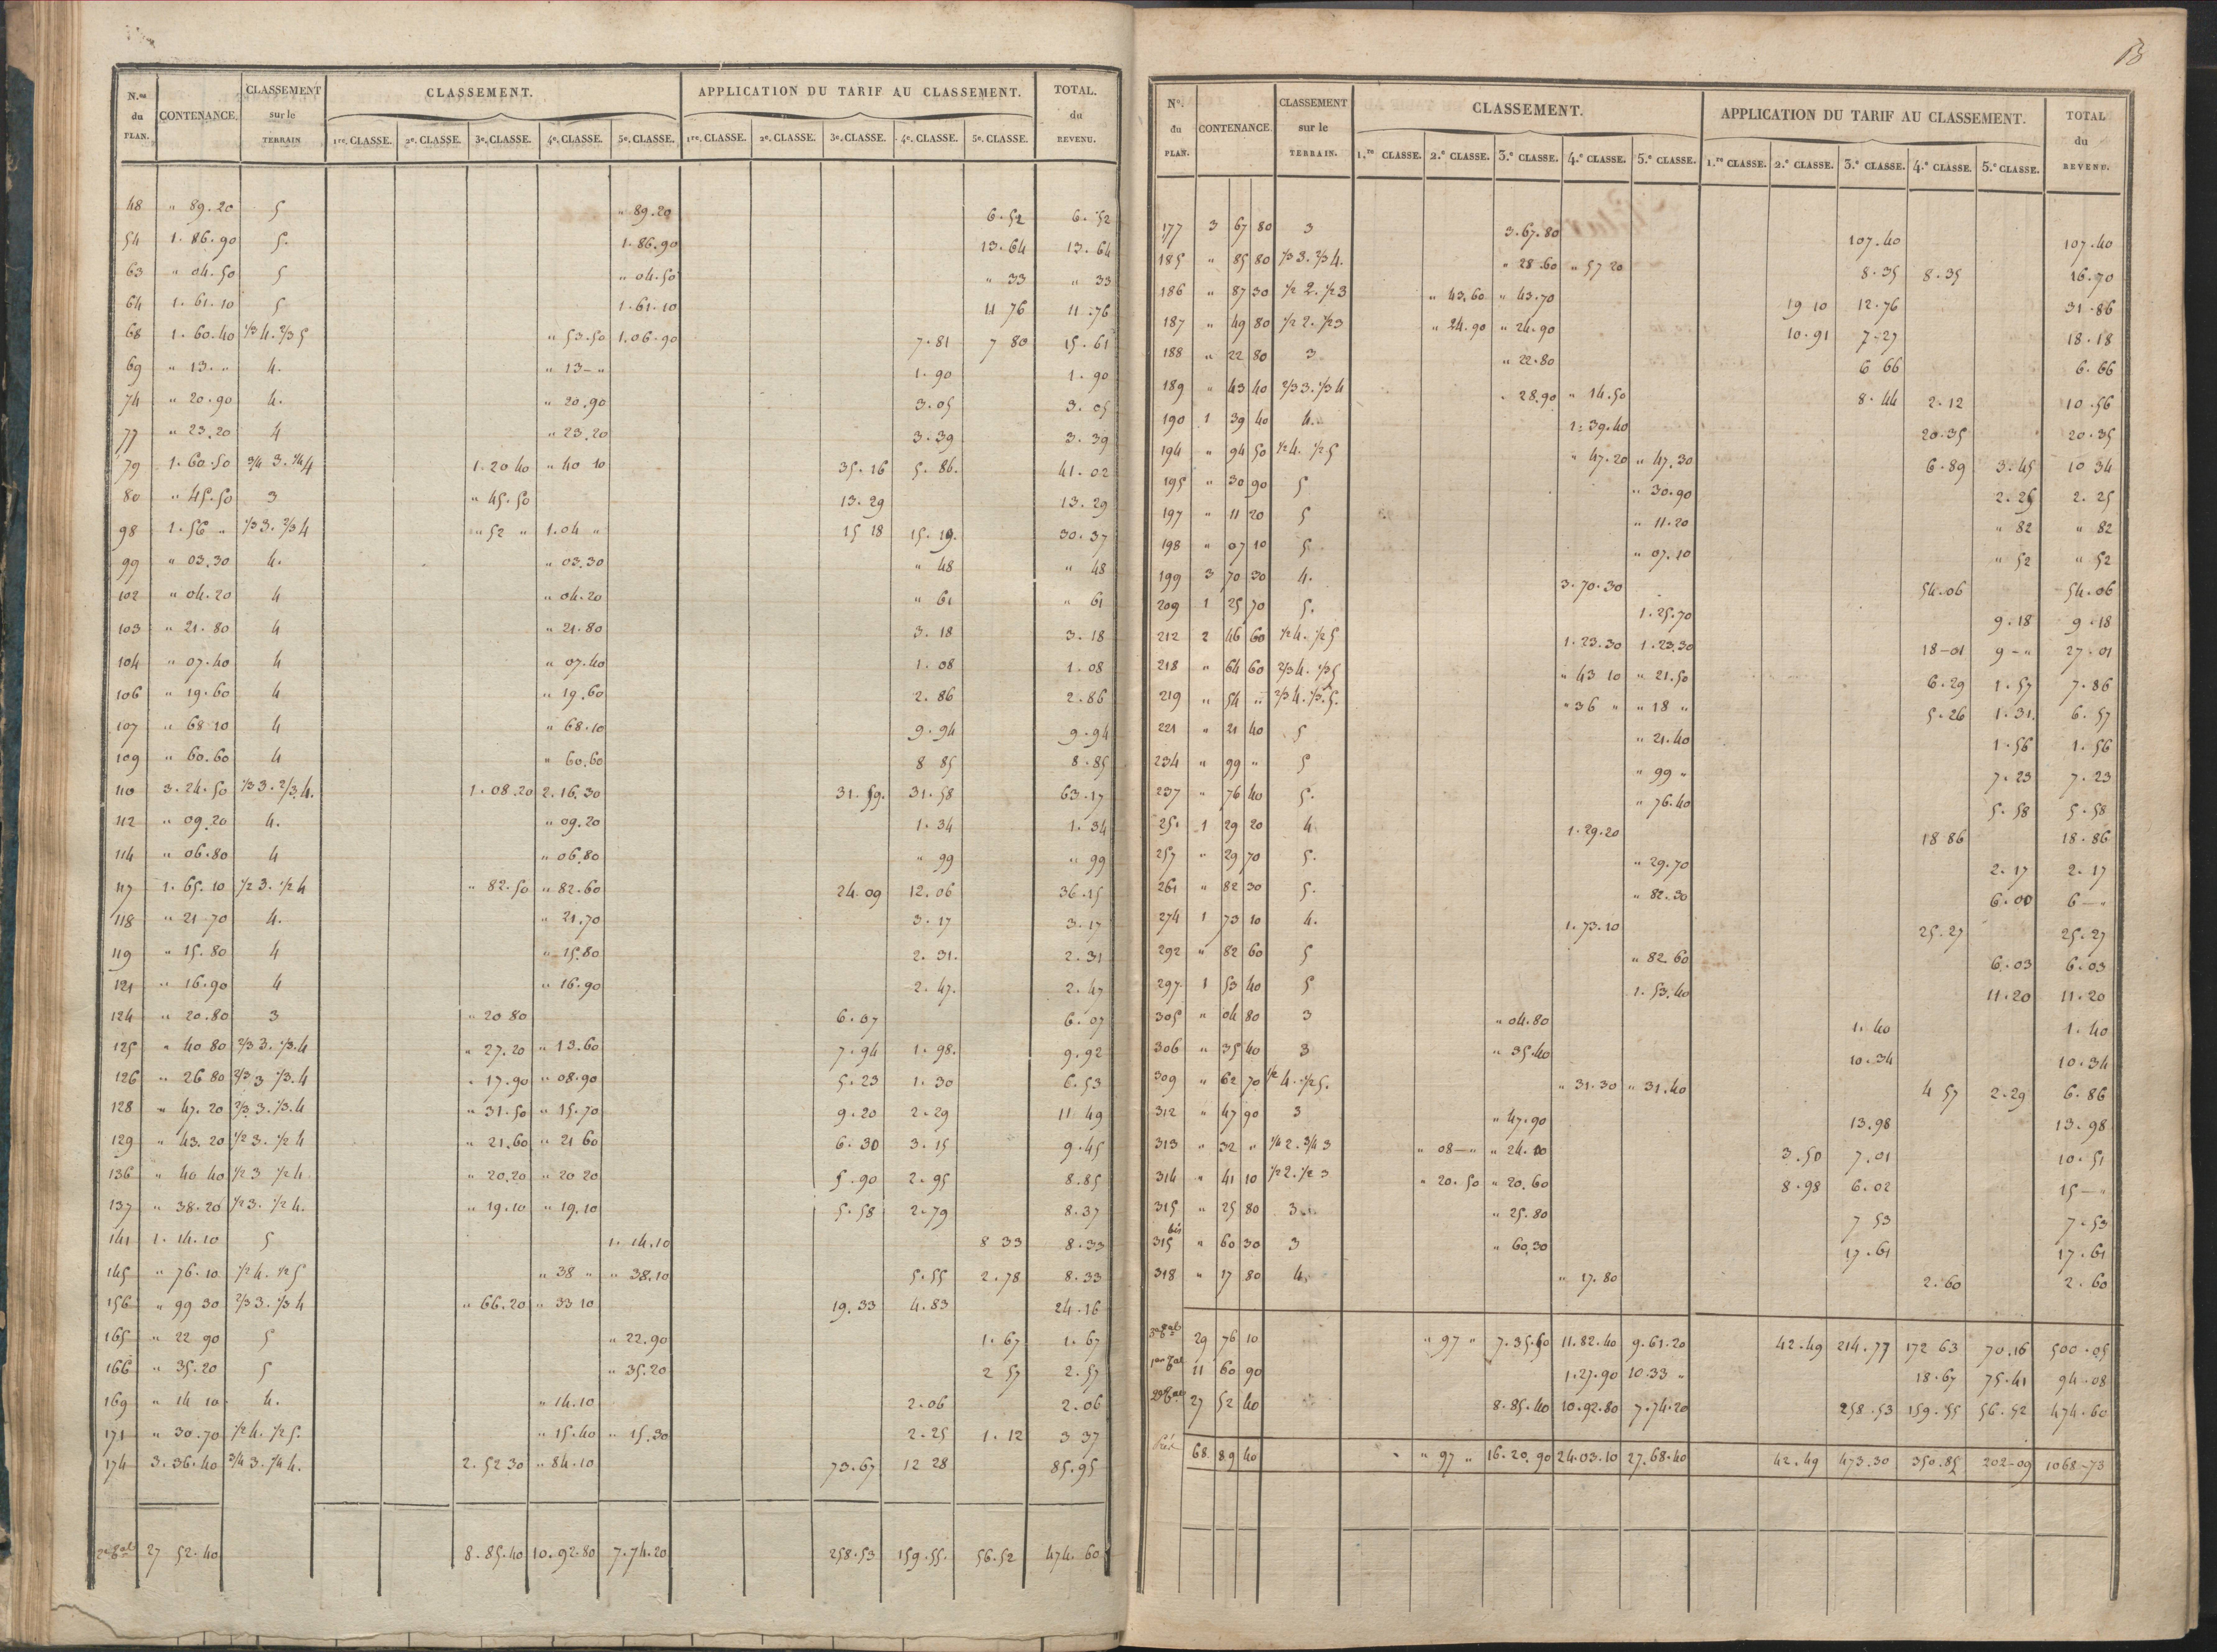 N.os du PLAN. CONTENANCE. CLASSEMENT sur le TERRAIN CLASSEMENT. APPLICATION DU TARIF AU CLASSEMENT. TOTAL. du REVENU.
1re. CLASSE. 2e. CLASSE. 3e. CLASSE. 4e. CLASSE. 5e. CLASSE. 1re. CLASSE. 2e. CLASSE. 3e. CLASSE. 4e. CLASSE. 5e. CLASSE.
48 " 89.20 5 " 89.20 6.52 6.52
54 1.86.90 5. 1.86.90 13.64 13.64
63 " 04.50 5 " 04.50 " 33 " 33
64 1.61.10 5 1.61.10 11 76 11.76
68 1.60.40 1/3 4. 2/3 5 " 53.50 1.06.90 7.81 7 80 15.61
69 " 13. " 4. " 13 - " 1.90 1.90
74 " 20.90 4. " 20.90 3.05 3.05
77 " 23.20 4 " 23.20 3.39 3.39
79 1.60.50 3/4 3. 1/4 4 1.20 40 " 40 10 35.16 5.86. 41.02
80 " 45.50 3 " 45.50 13.29 13.29
98 1.56 " 1/3 3. 2/3 4 " 52 " 1.04 " 15 18 15.19. 30.37
99 " 03.30 4. " 03.30 " 48 " 48
102 " 04.20 4 " 04.20 " 61 " 61
103 " 21.80 4 " 21.80 3.18 3.18
104 " 07.40 4 " 07.40 1.08 1.08
106 " 19.60 4 " 19.60 2.86 2.86
107 " 68 10 4 " 68.10 9.94 9.94
109 " 60.60 4 " 60.60 8 85 8.85
110 3.24.50 1/3 3. 2/3 4. 1.08.20 2.16.30 31.59. 31.58 63.17
112 " 09.20 4. " 09.20 1.34 1.34
114 " 06.80 4 " 06.80 " 99 " 99
117 1.65.10 1/2 3. 1/2 4 " 82.50 " 82.60 24.09 12.06 36.15
118 " 21 70 4. " 21.70 3.17 3.17
119 " 15.80 4 " 15.80 2.31. 2.31
121 " 16.90 4 " 16.90 2.47. 2.47
124 " 20.80 3 " 20 80 6.07 6.07
125 " 40 80 2/3 3. 1/3.4 " 27.20 " 13.60 7.94 1.98. 9.92
126 " 26 80 2/3 3 1/3.4 " 17.90 " 08.90 5.23 1.30 6.53
128 " 47.20 2/3 3. 1/3.4 " 31.50 " 15.70 9.20 2.29 11 49
129 " 43.20 1/2 3. 1/2 4 " 21.60 " 21 60 6.30 3.15 9.45
136 " 40 40 1/2 3 1/2 4 " 20.20 " 20 20 5.90 2.95 8.85
137 " 38.20 1/2 3. 1/2 4. " 19.10 " 19.10 5.58 2.79 8.37
141 1.14.10 5 1.14.10 8 33 8.33
145 " 76.10 1/2 4. 1/2 5 " 38 " " 38.10 5.55 2.78 8.33
156 " 99 30 2/3 3. 1/3 4 " 66.20 " 33 10 19.33 4.83 24.16
165 " 22 90 5 " 22.90 1.67 1.67
166 " 35.20 5 " 35.20 2 57 2.57
169 " 14 10 4. " 14.10 2.06 2.06
171 " 30.70 1/2 4. 1/2 5. " 15.40 " 15.30 2.25 1.12 3 37
174 3.36.40 3/4 3. 1/4 4. 2.52 30 " 84.10 73.67 12 28 85.95
27 52.40 8.85.40 10.92.80 7.74.20 258.53 159.55. 56.52 474.60
N°. du PLAN. CONTENANCE. CLASSEMENT sur le TERRAIN. CLASSEMENT. APPLICATION DU TARIF AU CLASSEMENT. TOTAL du REVENU.
1.re CLASSE. 2.e CLASSE. 3.e CLASSE. 4.e CLASSE. 5.e CLASSE. 1.re CLASSE. 2.e CLASSE. 3.e CLASSE. 4.e CLASSE. 5.e CLASSE.
177 3 67 80 3 3.67.80 107.40 107.40
185 " 85 80 1/3 3. 2/3 4. " 28.60 " 57 20 8.35 8.35 16.70
186 " 87 30 1/2 2. 1/2 3 " 43.60 " 43.70 19 10 12.76 31.86
187 " 49 80 1/2 2. 1/2 3 " 24.90 " 24.90 10.91 7.27 18.18
188 " 22 80 3 " 22.80 6 66 6.66
189 " 43 40 2/3 3. 1/3 4 " 28.90 " 14.50 8.44 2.12 10.56
190 1 39 40 4. 1.39.40 20.35 20.35
194 " 94 50 1/2 4. 1/2 5 " 47.20 " 47.30 6.89 3.45 10 34
195 " 30 90 5 " 30.90 2.25 2.25
197 " 11 20 5 " 11.20 " 82 " 82
198 " 07 10 5 " 07.10 " 52 " 52
199 3 70 30 4. 3.70.30 54.06 54.06
209 1 25 70 5. 1.25.70 9.18 9.18
212 2 46 60 1/2 4. 1/2 5 1.23.30 1.23.30 18-01 9-" 27.01
218 " 64 60 2/3 4. 1/3 5 " 43 10 " 21.50 6.29 1.57 7.86
219 " 54 " 2/3 4. 1/3.5. " 36 " " 18 " 5.26 1.31. 6.57
221 " 21 40 5 " 21.40 1.56 1.56
234 " 99 " 5 " 99 " 7.23 7.23
237 " 76 40 5. " 76.40 5.58 5.58
251 1 29 20 4 1.29.20 18 86 18.86
257 " 29 70 5. " 29.70 2.17 2.17
261 " 82 30 5. " 82.30 6.00 6-"
274 1 73 10 4. 1.73.10 25.27 25.27
292 " 82 60 5 " 82 60 6.03 6.03
297 1 53 40 5 1.53.40 11.20 11.20
305 " 04 80 3 " 04.80 1.40 1.40
306 " 35 40 3 " 35.40 10.34 10.34
309 " 62 70 1/2 4. 1/2 5. " 31.30 " 31.40 4 57 2.29 6.86
312 " 47 90 3 " 47.90 13.98 13.98
313 " 32 " 1/4 2. 3/4 3 " 08-" " 24.00 3.50 7.01 10.51
314 " 41 10 1/2 2. 1/2 3 " 20.50 " 20.60 8.98 6.02 15-"
315 " 25 80 3 " 25.80 7 53 7.53
315 bis " 60 30 3 " 60.30 17.61 17.61
318 " 17 80 4. " 17.80 2.60 2.60
29 76 10 " 97 " 7.35.50 11.82.40 9.61.20 42.49 214.77 172 63 70.16 500.05
11 60 90 1.27.90 10.33 " 18.67 75.41 94.08
27 52 40 8.85.40 10.92.80 7.74.20 258.53 159.55 56.52 474.60
68 89 40 " " 97 " 16.20.90 24.03.10 27.68.40 42.49 473.30 350.85 202-09 1068-73